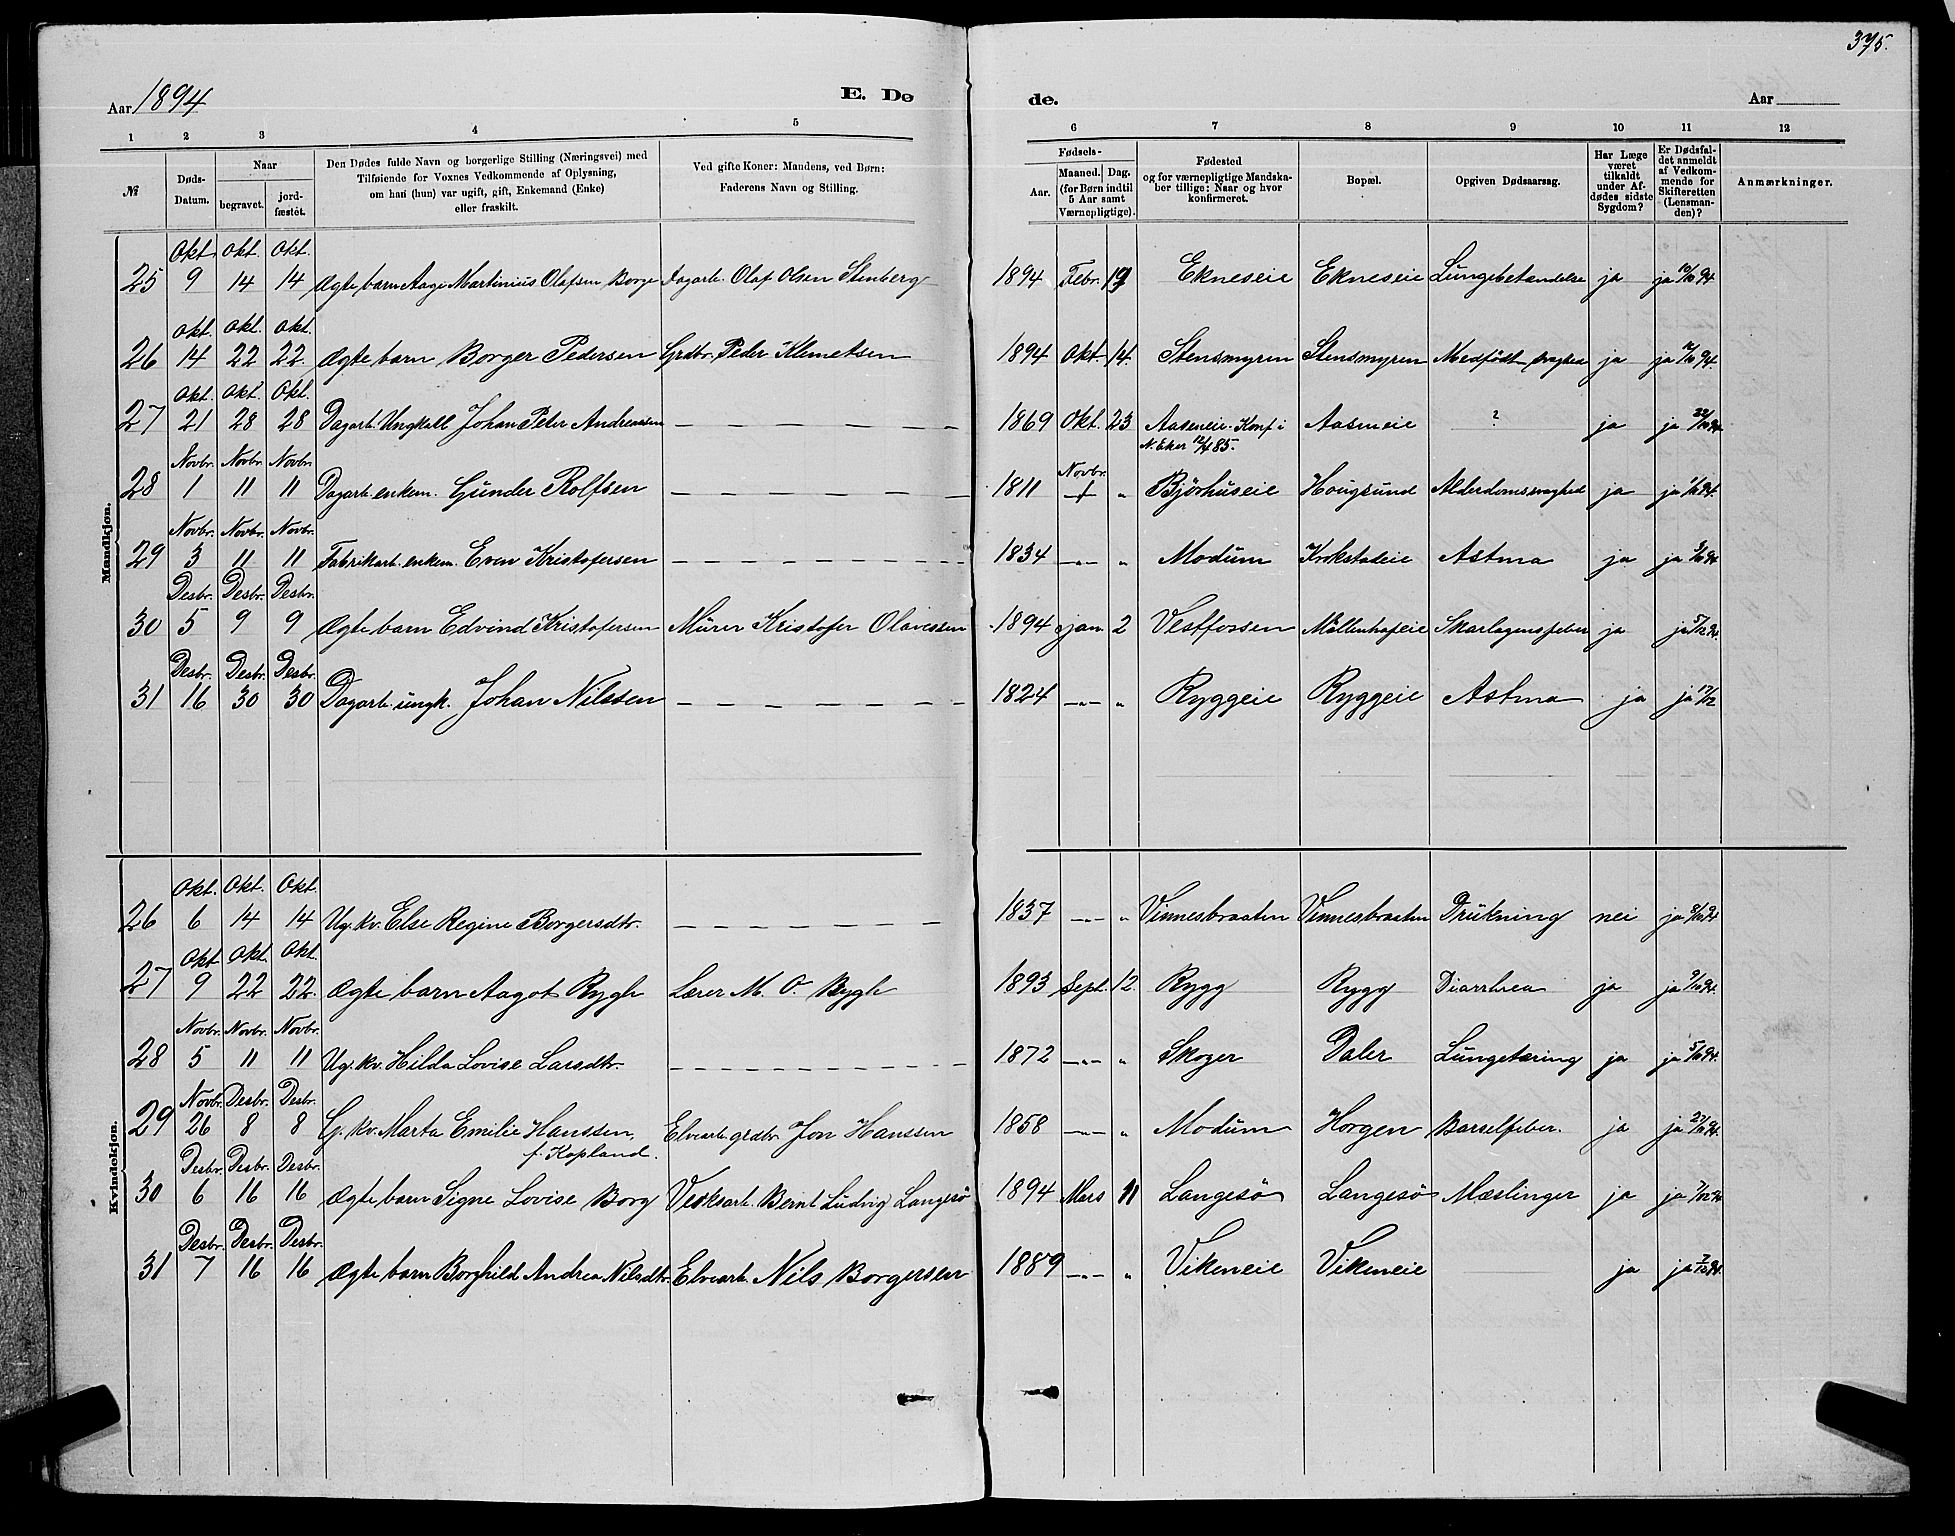 375.
Aar 1894 E. Dø de. Aar
1 2 3 4 5 6 7 8 9 10 11 12
№ Døds-Datum. Naar begravet. jord-fæstet. Den Dødes fulde Navn og borgerlige Stilling (Næringsvei) med Tilføiende for Voxnes Vedkommende af Oplysning, om han (hun) var ugift, gift, Enkemand (Enke) eller fraskilt. Ved gifte Koner: Mandens, ved Børn: Faderens Navn og Stilling. Fødsels- Aar. Maaned. Dag. (for Børn indtil 5 Aar samt Værnepligtige). Fødested og for værnepligtige Mandska-ber tillige: Naar og hvor konfirmeret. Bopæl. Opgiven Dødsaarsag. Har Læge været tilkaldt under Af-dødes sidste Sygdom? Er Dødsfal-det anmeldt af Vedkom-mende for Skifteretten (Lensman-den)? Anmærkninger.
Mandkjøn.
Okt. Okt. Okt.
25 9 14 14 Ægte barn Aage Martinius Olafsen Borge Dagarb. Olaf Olsen Stenberg 1894 Febr. 19 Ekneseie Ekneseie Lungebetændelse ja ja 10/10 94
Okt. Okt. Okt.
26 14 22 22. Ægte barn Borger Pedersen Grdbr. Peder Klemetsen 1894 Okt. 14. Stensmyren Stensmyren Medfödt svaghed ja ja 94.
Okt. Okt. Okt.
27 21 28 28 Dagarb. Ungkall Johan Peter Andreassen — — — — — 1869 Okt. 23 Aasmeie. Konf i Aasmeie ? ja ja 22/10 94
N. Eker 12/4 85.
Novbr. Novbr. Novbr. Novbr.
28 1 11 11 Dagarb. enkem. Gunder Rolfsen — — — — — 1811 + " Björhuseie Hougsund Alderdomssvaghed ja ja 1/11 94.
Novbr. Novbr. Novbr.
29 3 11 11 Fabrikarb. enkem. Even Kristofersen — — — — — 1834 —"— " Modum Krokstadeie Astma ja ja 3/11 94
Desbr. Desbr. Desbr.
30 5 9 9 Ægte barn Edvind Kristofersen Murer Kristofer Olavessen 1894 jan. 2 Vestfossen Möllenhofeie Skarlagensfeber ja ja 5/12 94.
Desbr. Desbr. Desbr.
31 16 30 30 Dagarb. ungk. Johan Nilssen — — — — — 1824 —"— " Ryggeie Ryggeie Astma ja ja 17/12
Kvindekjøn.
Okt. Okt. Okt.
26 6 14 14 Ug. kv. Else Regine Borgersdtr. — — — — — 1837 —"— " Vinnesbraaten Vinnesbraaten Drukning nei ja 8/10 94
Okt. Okt. Okt.
27 9 22 22. Ægte barn Aagot Rygh Lærer M. O. Rygh 1893 Sept. 12. Rygg Rygg Diarrhea ja ja 9/10 94.
Novbr. Novbr. Novbr.
28 5 11 11 Ug. kv. Hilda Lovise Larsdtr. — — — — — 1872 —"— " Skoger Daler Lungetæring ja ja 5/11 94.
Novbr. Desbr. Desbr.
29 26 8 8 G. kv. Marta Emilie Hanssen, Elvearb. grdbr. Jon Hanssen 1858 —"— " Modum Horgen Barselfeber. ja ja 27/11 94.
f. Kopland.
Desbr. Desbr. Desbr.
30 6 16 16 Ægte barn Signe Lovise Borg Verksarb. Bernt Ludvig Langesö 1894 Mars 11 Langesö Langesö Mæslinger ja ja 7/12 94
Desbr. Desbr. Desbr.
31 7 16 16 Ægte barn Borghild Andrea Nilsdtr. Elvearb. Nils Borgersen 1889 —"— " Vikeneie Vikeneie ja ja 7/12 94.